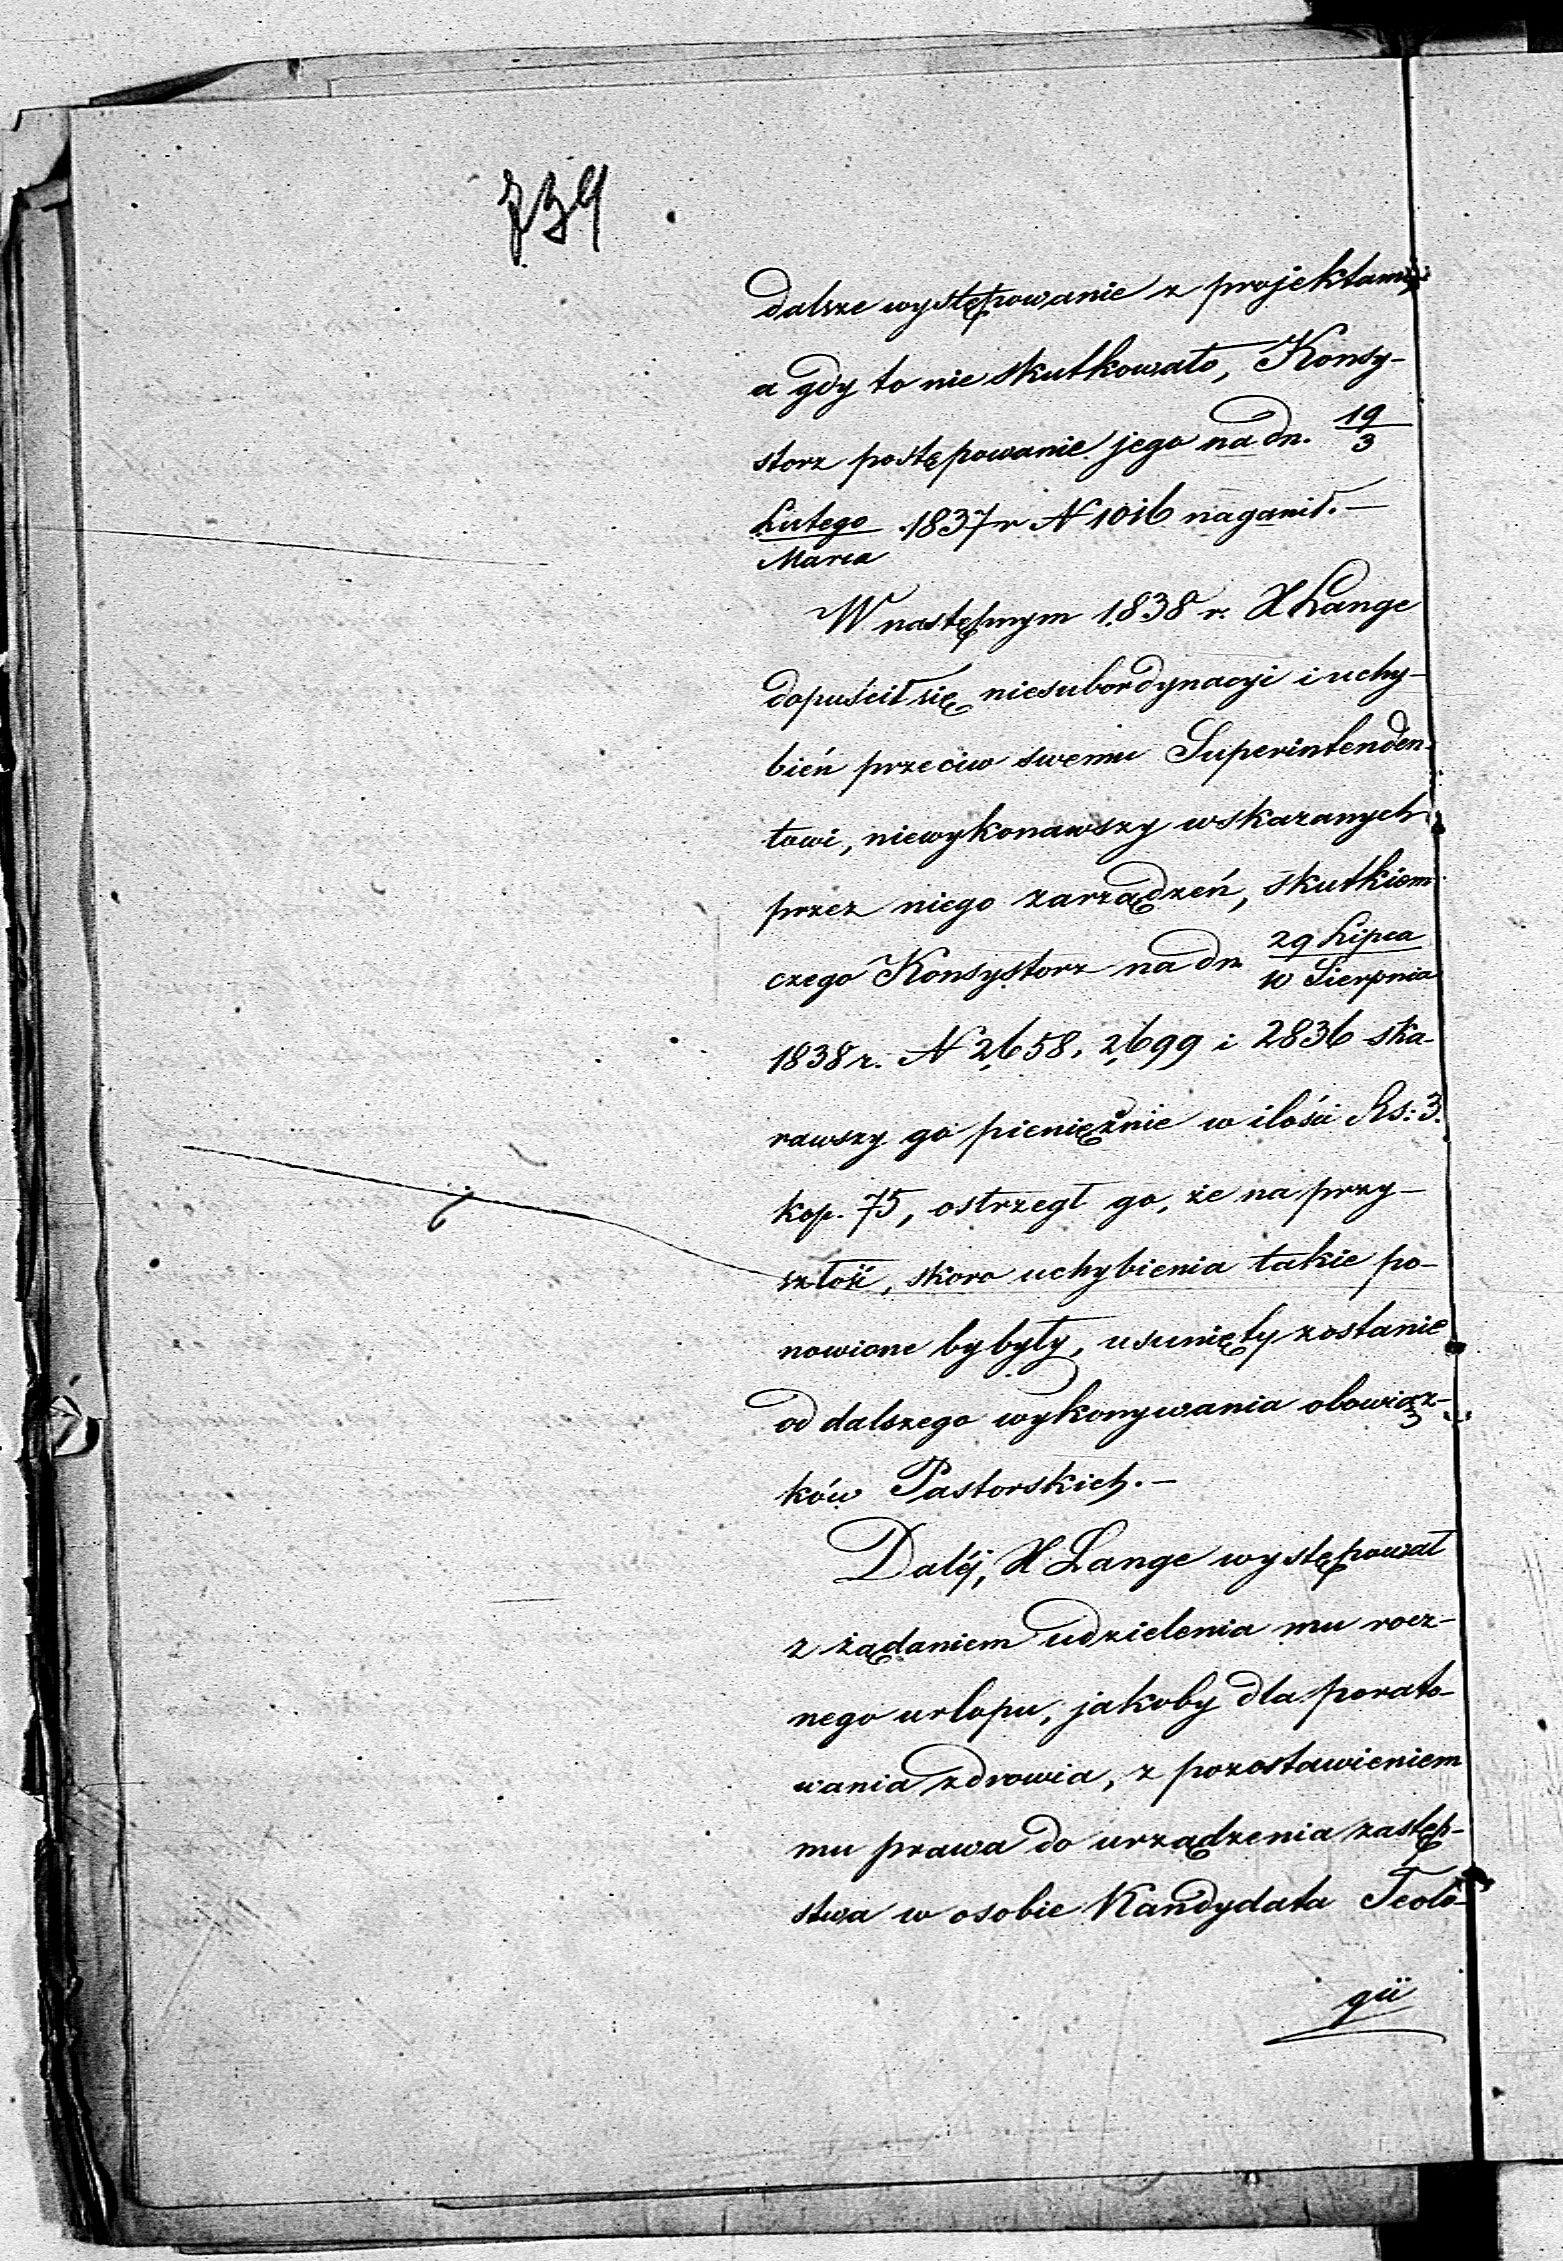 739
dalsze występowanie z projektami
a gdy to nie skutkowało, Konsy-
storz postępowanie jego na dn. 19/3
Lutego/Marca 1837 r N 1016 naganił. —
W następnym 1838 r. X Lange
dopuścił się niesubordynacyi i uchy-
bień przeciw swemu Superintenden-
towi, niewykonawszy wskazanych
przez niego zarządzeń, skutkiem
czego Konsystorz na dn 29 Lipca/10 Sierpnia
1838 r. N 2658, 2699 i 2836 ska-
rawszy go pieniężnie w ilości Rs: 3.
kop. 75, ostrzegł go, że na przy-
szłość, skoro uchybienia takie po-
nowione by były, usunięty zostanie
od dalszego wykonywania obowiąz-
ków Pastorskich. —
Daléj, X Lange występował
z żądaniem udzielenia mu rocz-
nego urlopu, jakoby dla porato-
wania zdrowia, z pozostawieniem
mu prawa do urządzenia zastęp-
stwa w osobie Kandydata Teolo-
gii